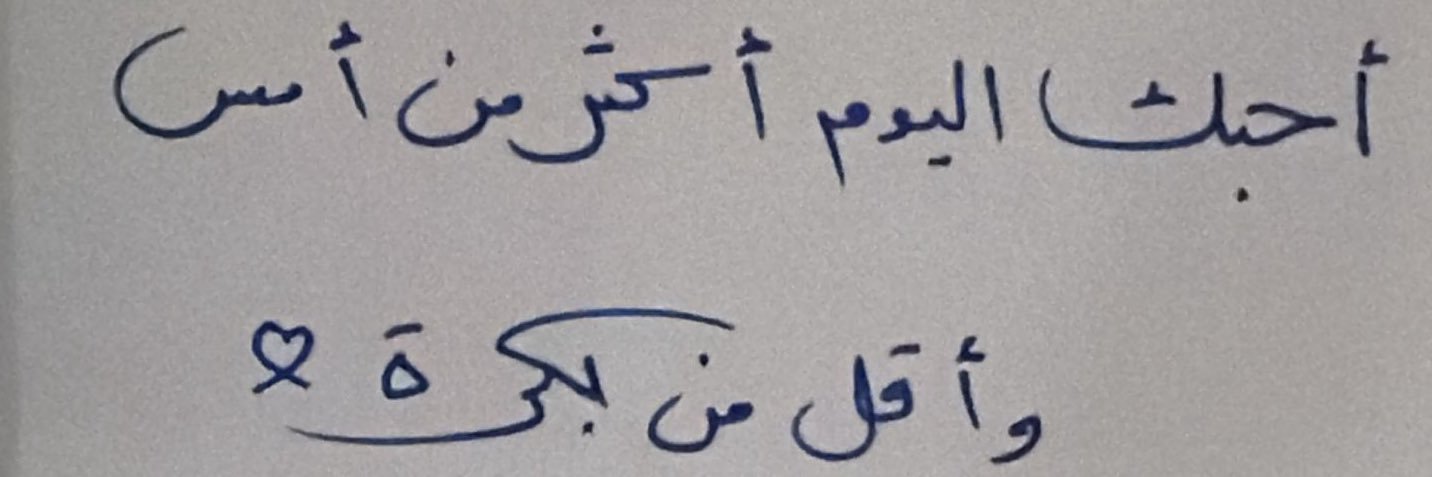 أحبك اليوم أكثر من أمس
وأقل من بكرة